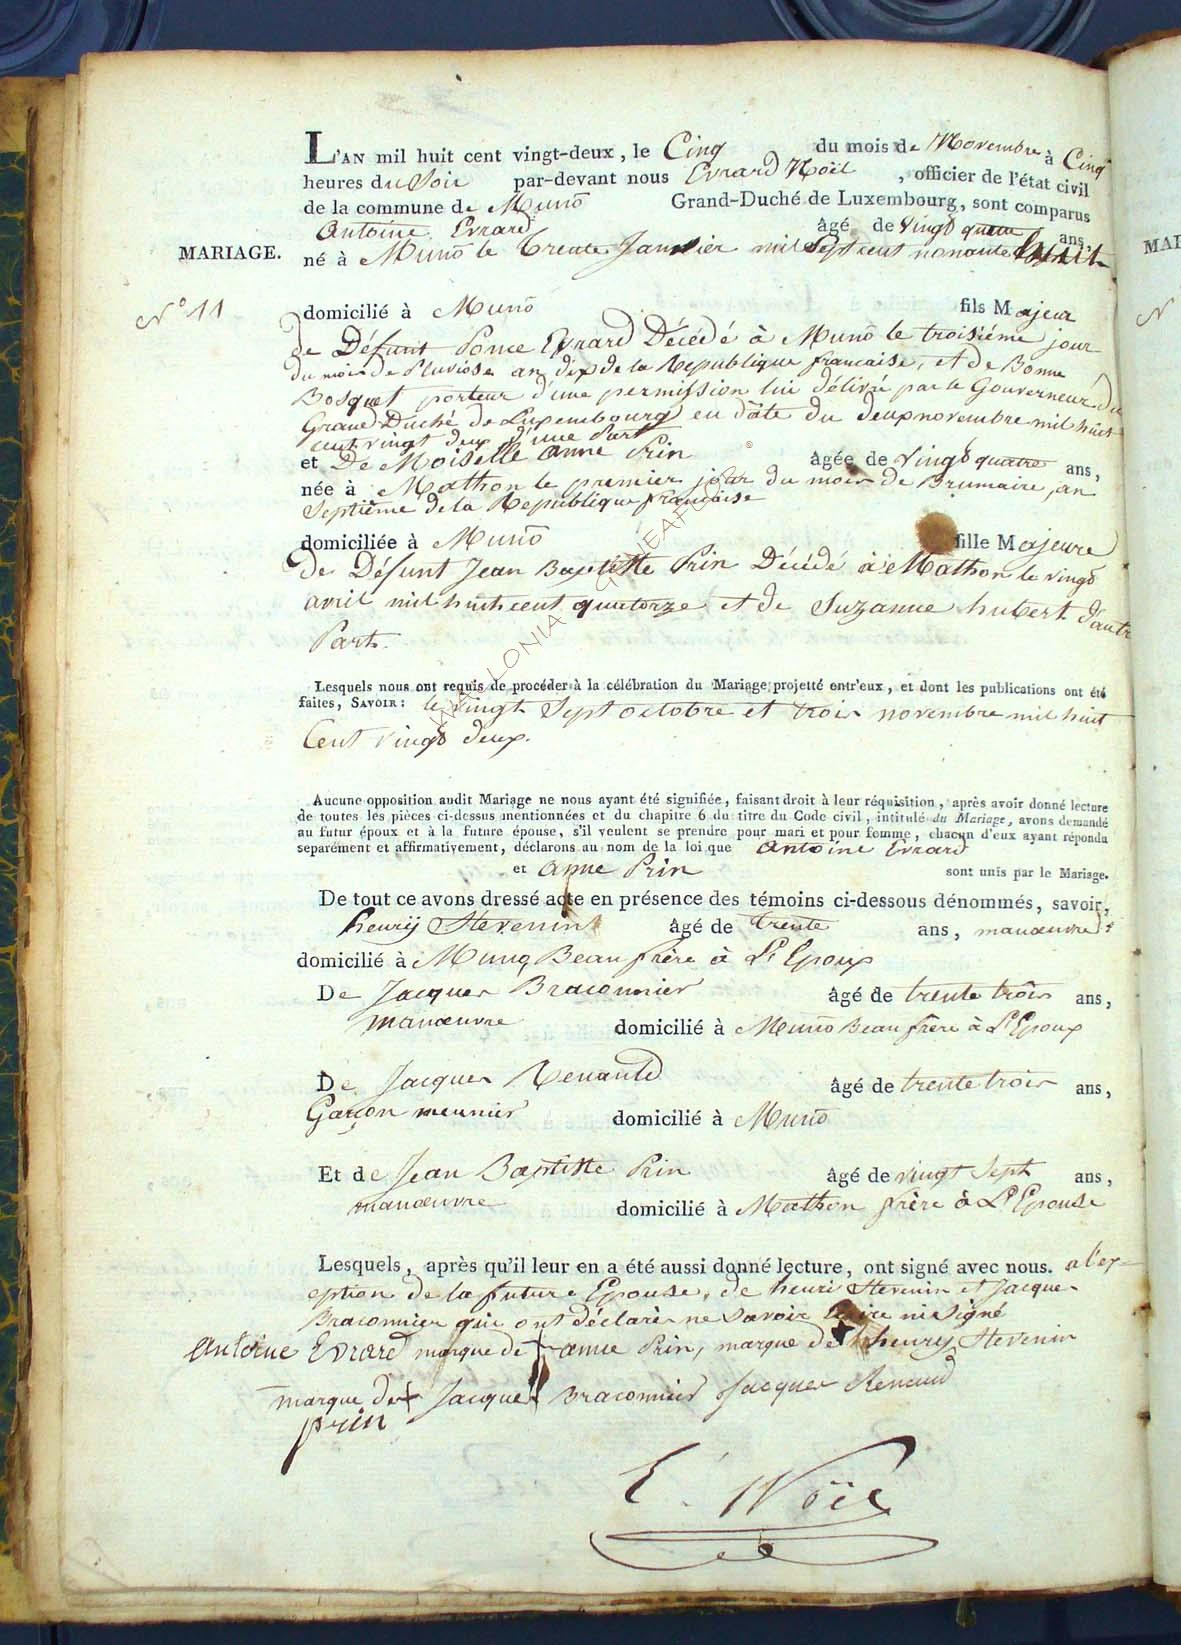 L'AN mil huit cent vingt-deux, le Cinq du mois de Novembre à Cinq
heures du Soir par-devant nous Evrard Noël, officier de l'état civil
de la commune de Muno Grand-Duché de Luxembourg, sont comparus
Antoine Evrard âgé de vingt quatre ans,
MARIAGE.
né à Muno le trente Janvier mil Sept cent nonante huit
N° 11
domicilié à Muno fils Majeur
de Défunt Ponce Evrard Décédé à Muno le troisième jour
du mois de Pluviose an dix de la Republique francaise, et de Bonne
Bosquet porteur d'une permission lui délivré par le Gouverneur du
Grand Duché de Luxembourg en date du deux novembre mil huit
cent vingt deux d'une Part
et De Moiselle anne Prin âgée de vingt quatre ans,
née à Mathon le premier jour du mois de Brumaire, an
Septième de la Republique francaise
domiciliée à Muno fille Majeure
de Défunt Jean Baptiste Prin Décédé à Mathon le vingt
avril mil huit cent quatorze et de Suzanne hubert d'autre
Part.
Lesquels nous ont requis de procéder à la célébration du Mariage projetté entr'eux, et dont les publications ont été
faites, SAVOIR: le vingt Sept octobre et trois novembre mil huit
Cent vingt deux.
Aucune opposition audit Mariage ne nous ayant été signifiée, faisant droit à leur réquisition, après avoir donné lecture
de toutes les pièces ci-dessus mentionnées et du chapitre 6 du titre du Code civil, intitulé du Mariage, avons demandé
au futur époux et à la future épouse, s'il veulent se prendre pour mari et pour femme, chacun d'eux ayant répondu
séparément et affirmativement, déclarons au nom de la loi que Antoine Evrard
et anne Prin sont unis par le Mariage.
De tout ce avons dressé acte en présence des témoins ci-dessous dénommés, savoir,
henrij Stevenin âgé de trente ans, manœuvre
domicilié à Muno, Beau frère à L'Epoux
De Jacques Braconnier âgé de trente trois ans,
manœuvre domicilié à Muno Beau frère à L'Epoux
De Jacques Renauld âgé de trente trois ans,
Garçon meunier domicilié à Muno
Et de Jean Baptiste Prin âgé de vingt Sept ans,
manœuvre domicilié à Mathon frère à L'Epouse
Lesquels, après qu'il leur en a été aussi donné lecture, ont signé avec nous. a l'ex-
eption de la future Epouse, de henri Stevenin et Jacque
Braconnier qui ont déclarés ne Savoir Ecrire ni Signé
Antoine Evrard marque de + anne Prin, marque de + henry Stevenin
marque de + Jacques Braconnier Jacques Renaud
prin
E. Noël
WALLONIA GENEAFUN
MAR
N